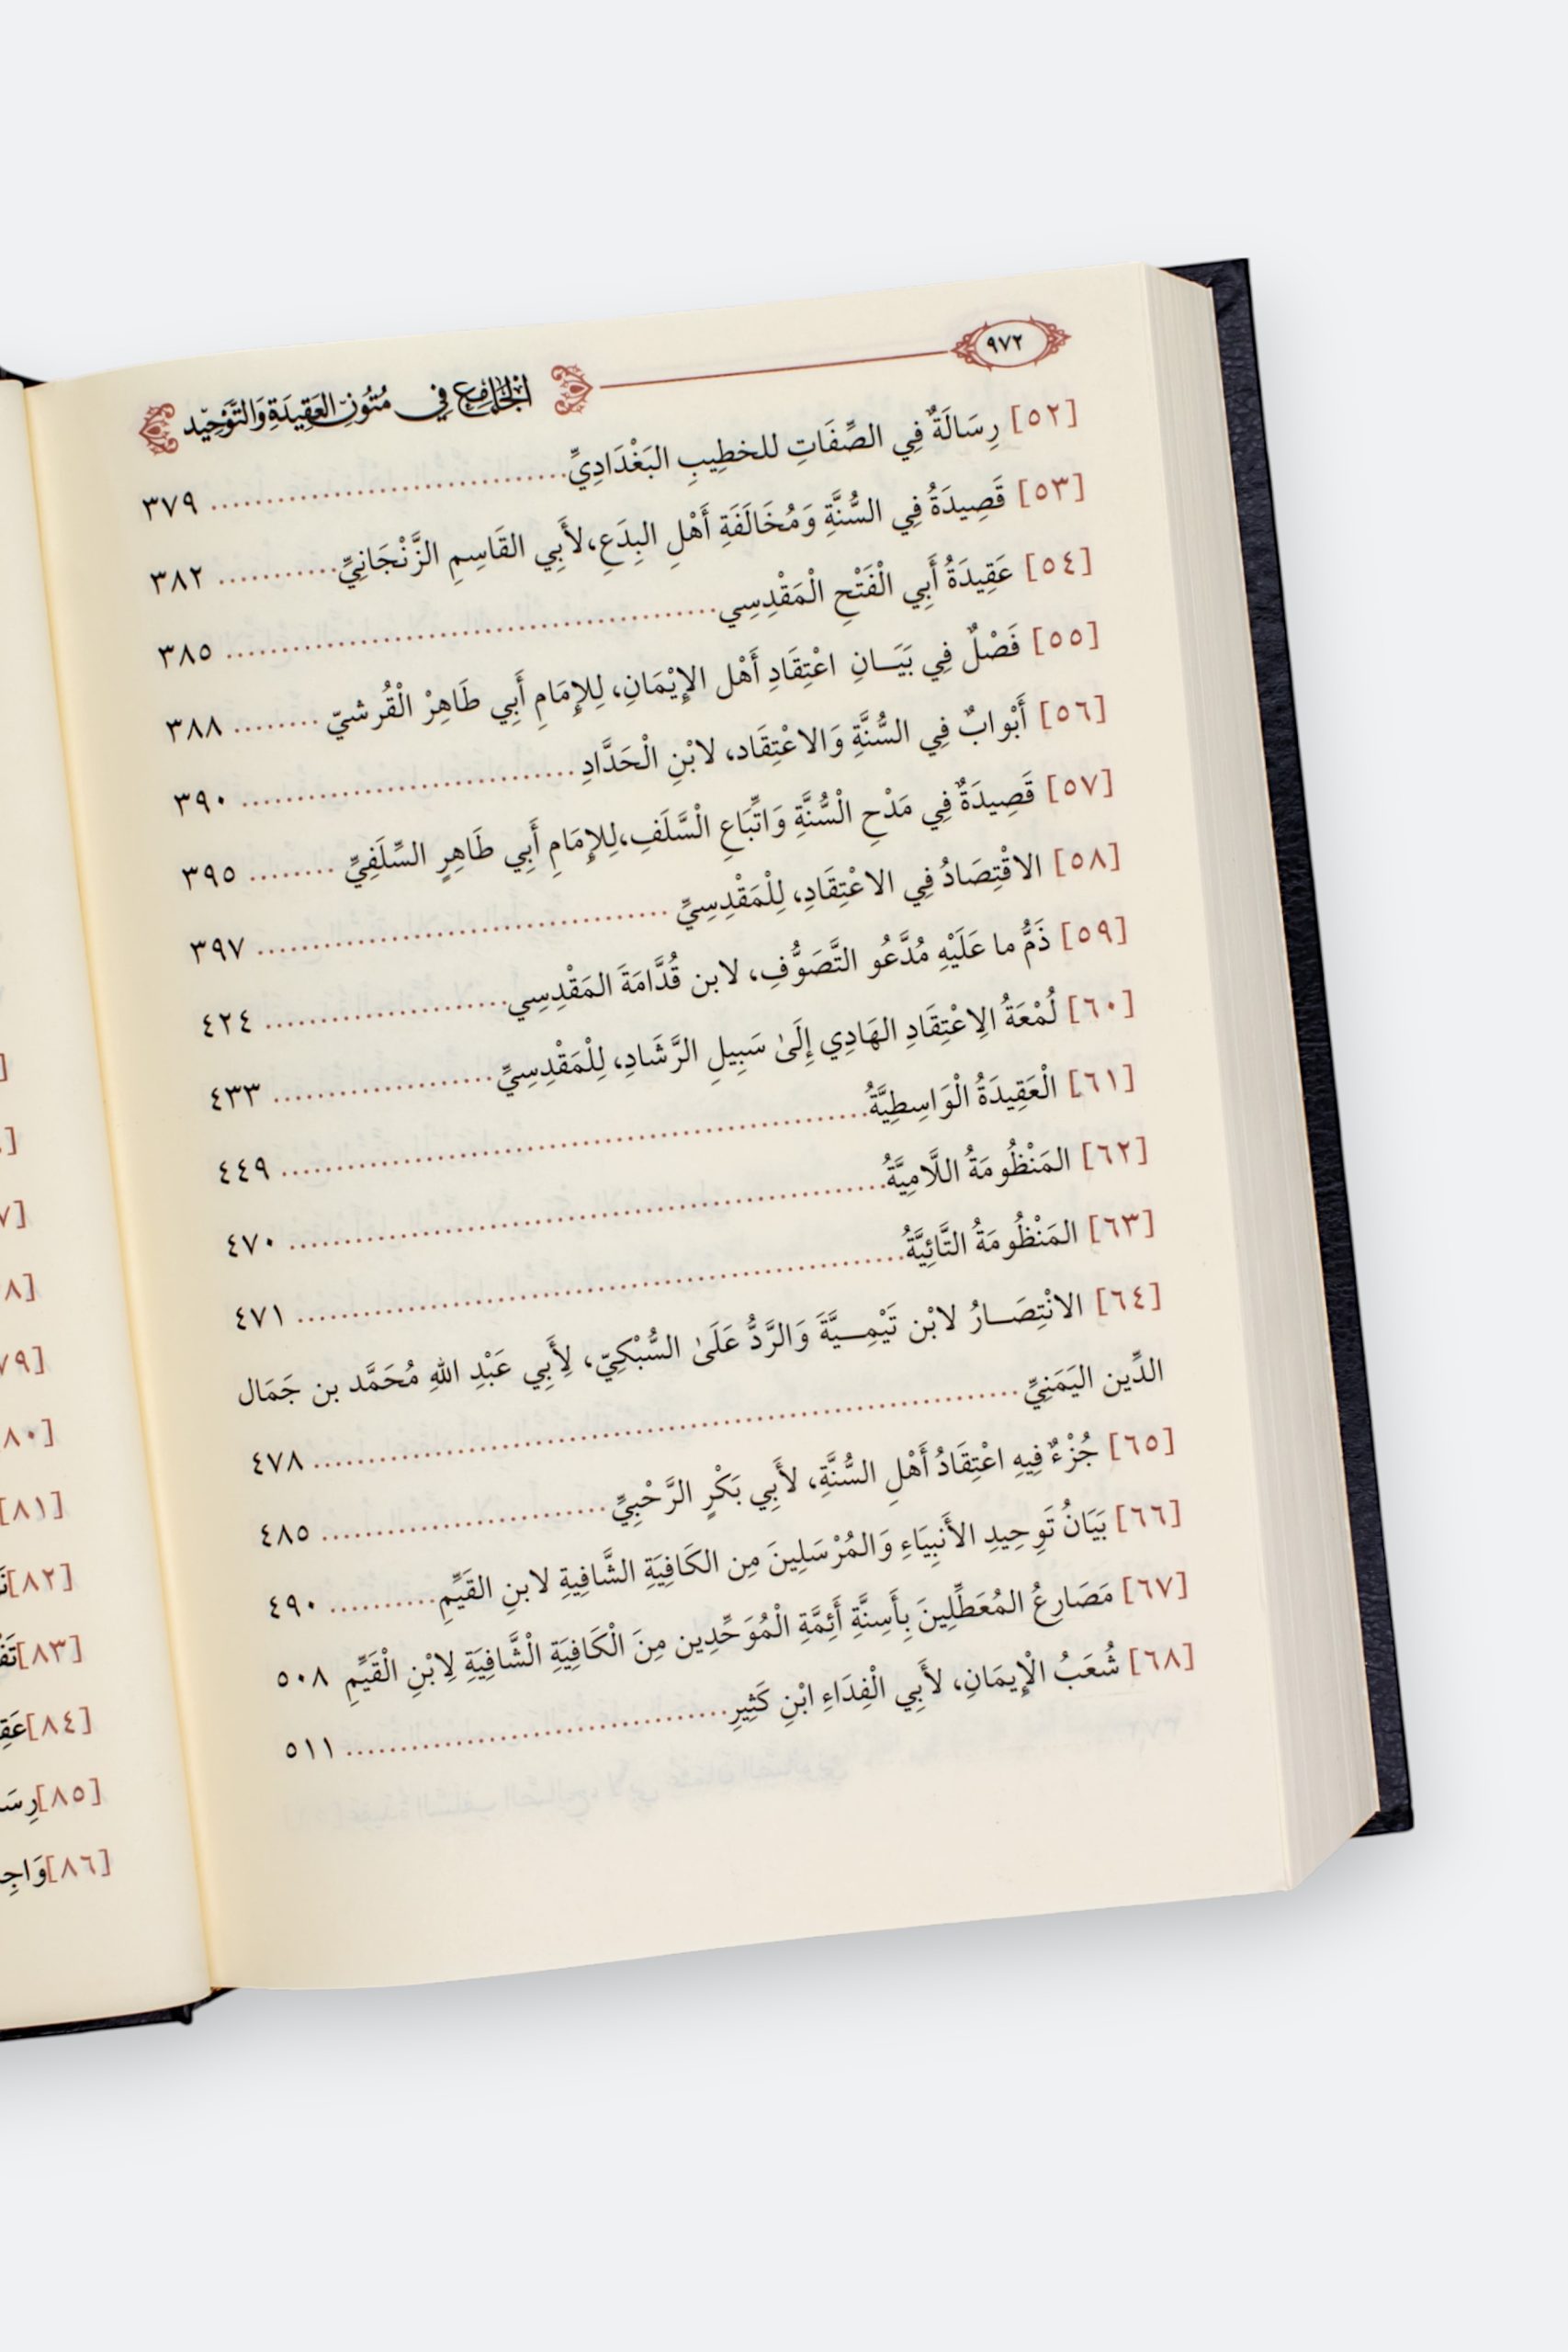 ٩٧٢
الجامع في متون العقيدة والتوحيد
[٥٢] رِسَالَةٌ فِي الصِّفَاتِ للخطِيبِ البَغْدَادِيِّ ................................ ٣٧٩
[٥٣] قَصِيدَةُ فِي السُّنَّةِ وَمُخَالَفَةِ أَهْلِ البِدَعِ، لأَبِي القَاسِمِ الزَّنْجَانِيِّ ........... ٣٨٢
[٥٤] عَقِيدَةُ أَبِي الْفَتْحِ الْمَقْدِسِي ................................ ٣٨٥
[٥٥] فَصْلٌ فِي بَيَــانِ اعْتِقَادِ أَهْل الإِيْمَانِ، لِلإِمَامِ أَبِي طَاهِرْ الْقُرشيّ ........ ٣٨٨
[٥٦] أَبْوابٌ فِي السُّنَّةِ وَالاعْتِقَاد، لابْنِ الْحَدَّادِ ................................ ٣٩٠
[٥٧] قَصِيدَةٌ فِي مَدْحِ الْسُّنَّةِ وَاتِّبَاعِ الْسَّلَفِ، لِلإِمَامِ أَبِي طَاهِرٍ السِّلَفِيِّ ........ ٣٩٥
[٥٨] الاقْتِصَادُ فِي الاعْتِقَادِ، لِلْمَقْدِسِيِّ ................................ ٣٩٧
[٥٩] ذَمُّ ما عَلَيْهِ مُدَّعُو التَّصَوُّفِ، لابن قُدَّامَةَ المَقْدِسِي ...................... ٤٢٤
[٦٠] لُمْعَةُ الِاعْتِقَادِ الهَادِي إِلَىٰ سَبِيلِ الرَّشَادِ، لِلْمَقْدِسِيِّ .................... ٤٣٣
[٦١] الْعَقِيدَةُ الْوَاسِطِيَّةُ ................................ ٤٤٩
[٦٢] المَنْظُومَةُ اللَّامِيَّةُ ................................ ٤٧٠
[٦٣] المَنْظُومَةُ التَّائِيَّةُ ................................ ٤٧١
[٦٤] الانْتِصَــارُ لابْن تَيْمِــيَّةَ وَالرَّدُّ عَلَىٰ السُّبْكِيّ، لِأَبِي عَبْدِ اللهِ مُحَمَّد بن جَمَال
الدِّين اليَمَنِيِّ ................................ ٤٧٨
[٦٥] جُزْءٌ فِيهِ اعْتِقَادُ أَهْلِ السُّنَّةِ، لأَبِي بَكْرٍ الرَّحْبِيِّ .......................... ٤٨٥
[٦٦] بَيَانُ تَوحِيدِ الأَنبِيَاءِ وَالمُرْسَلِينَ مِن الكَافِيَةِ الشَّافِيةِ لابنِ القَيِّمِ .......... ٤٩٠
[٦٧] مَصَارِعُ المُعَطِّلِينَ بِأَسِنَّةِ أَئِمَّةِ الْمُوَحِّدِين مِنَ الْكَافِيَةِ الْشَّافِيَةِ لِابْنِ الْقَيِّمِ ٥٠٨
[٦٨] شُعَبُ الْإِيمَانِ، لأَبِي الْفِدَاءِ ابْنِ كَثِيرِ ................................ ٥١١
٨٠]
[٨١]
[٨٢]
[٨٣]
[٨٤]
[٨٥]
[٨٦]